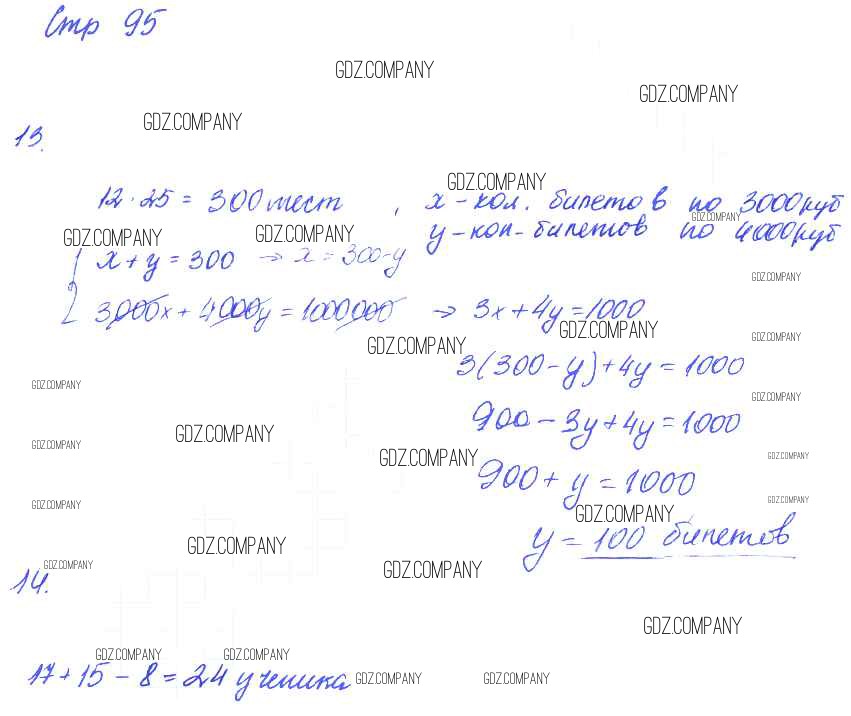 Стр 95
GDZ.COMPANY
GDZ.COMPANY
GDZ.COMPANY
13.
GDZ.COMPANY
12·25 = 300 мест , x – кол. билетов по 3000 руб
GDZ.COMPANY
GDZ.COMPANY GDZ.COMPANY y – кол – билетов по 4000 руб
x + y = 300 → x = 300 - y
GDZ.COMPANY
3000x + 4000y = 1000000 → 3x + 4y = 1000
GDZ.COMPANY
GDZ.COMPANY GDZ.COMPANY
3(300 - y) + 4y = 1000
GDZ.COMPANY
GDZ.COMPANY
900 - 3y + 4y = 1000
GDZ.COMPANY
GDZ.COMPANY
GDZ.COMPANY GDZ.COMPANY
900 + y = 1000
GDZ.COMPANY GDZ.COMPANY
GDZ.COMPANY
y = 100 билетов
GDZ.COMPANY
GDZ.COMPANY GDZ.COMPANY
14.
GDZ.COMPANY
GDZ.COMPANY GDZ.COMPANY
17 + 15 - 8 = 24 ученика GDZ.COMPANY GDZ.COMPANY